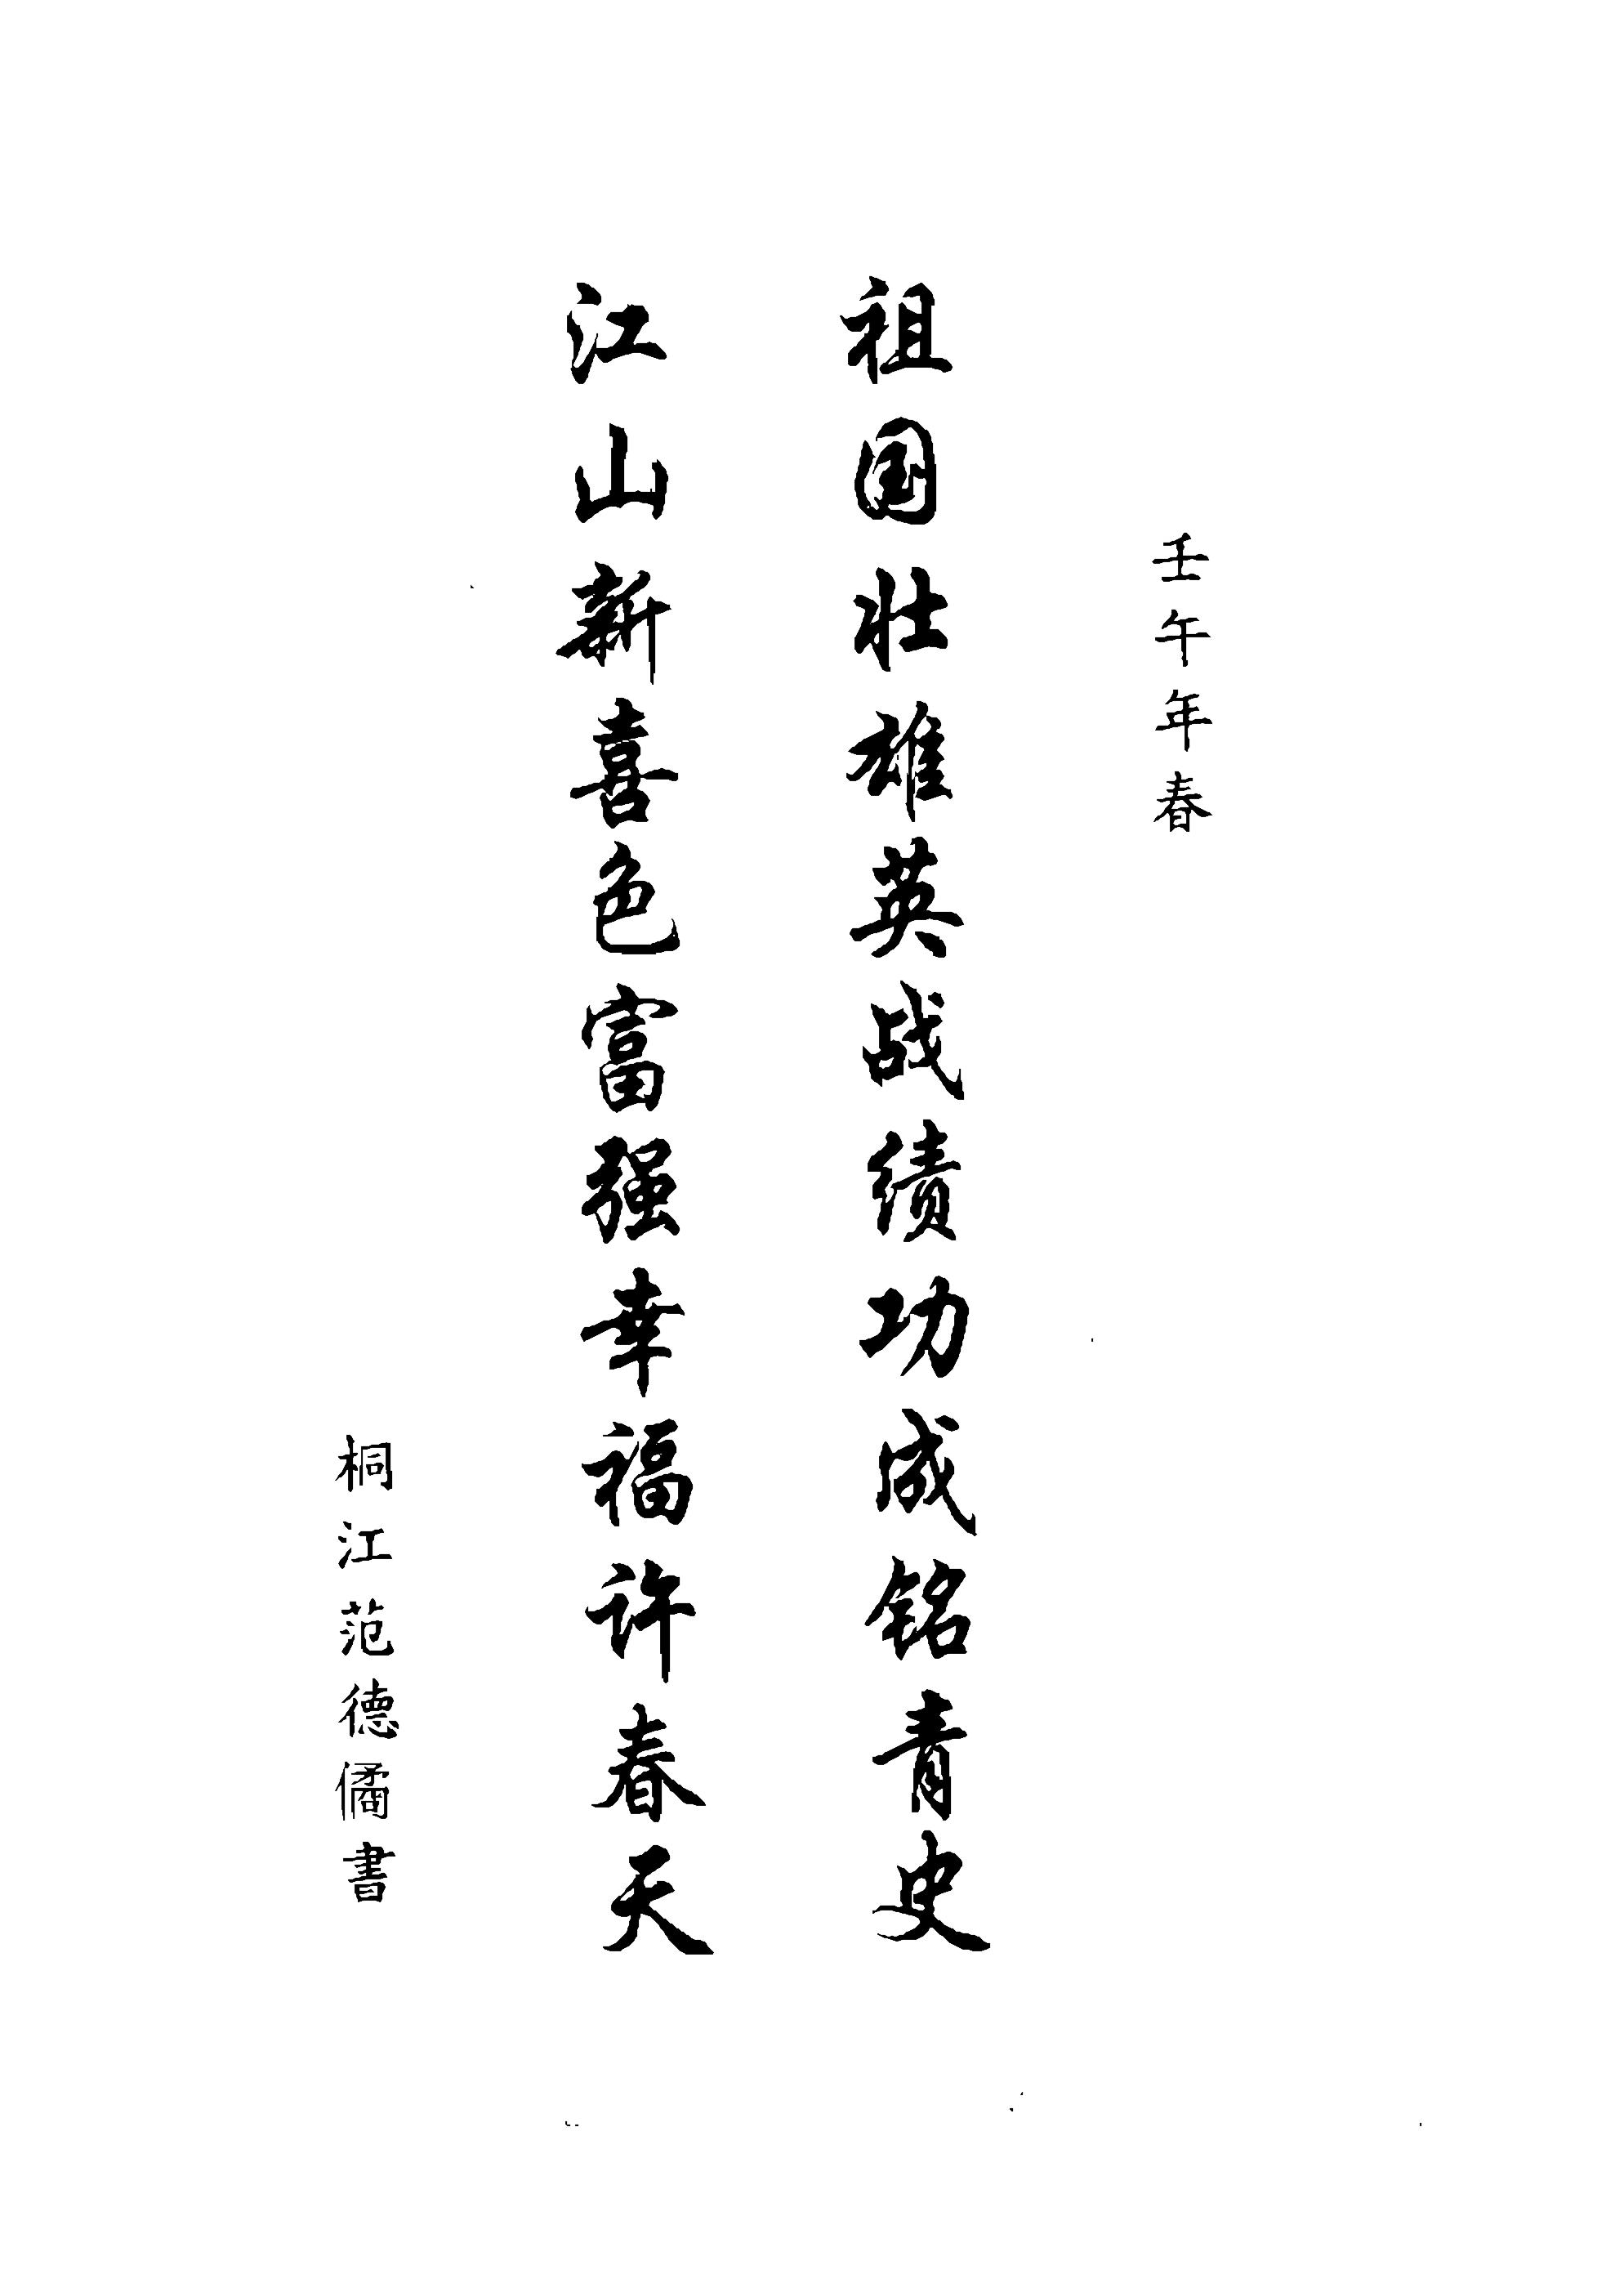 壬午年春
祖国壮雄英战绩功成铭青史
江山新喜色富强幸福许春天
桐江范德僑書